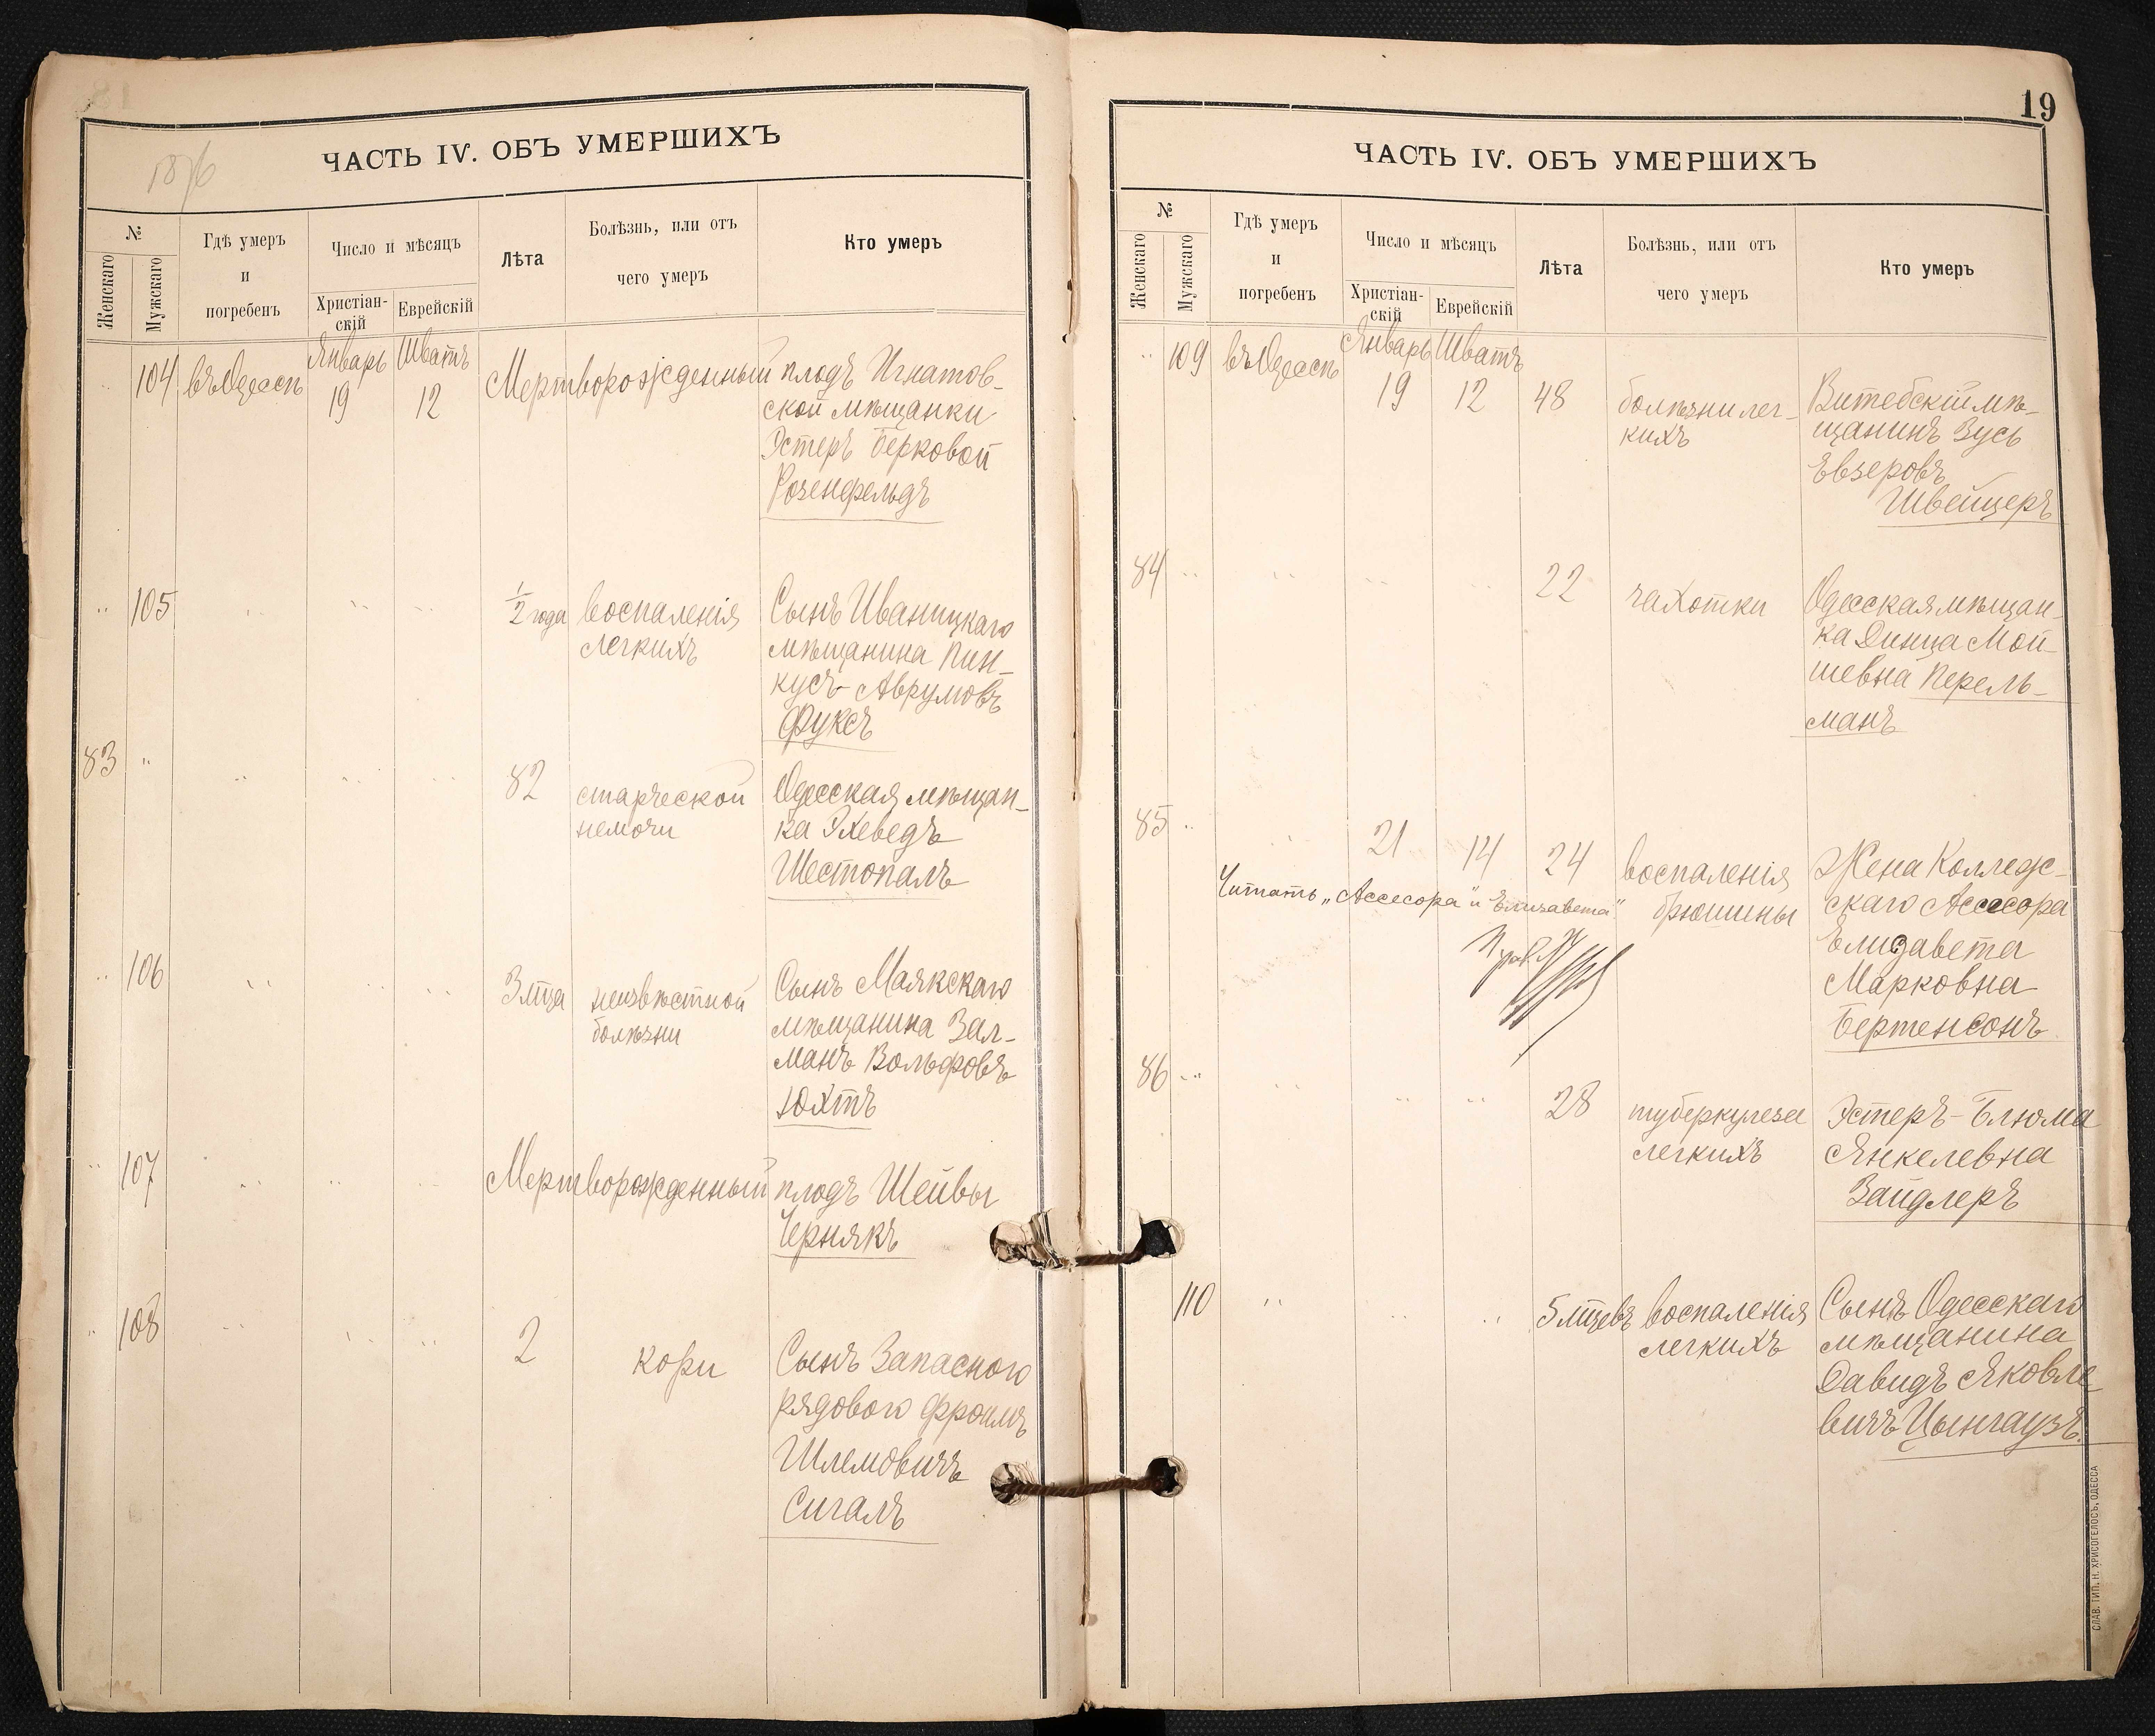 ЧАСТЬ IV. ОБЪ УМЕРШИХЪ
№
Женскаго
Мужскаго
Гдѣ умеръ
и
погребенъ
Число и мѣсяцъ
Христіан-
скій
Еврейскій
Лѣта
Болѣзнь, или отъ
чего умеръ
Кто умеръ
„ 104 въ Одессѣ Январь 19 Шватъ 12 Мертворожденный плодъ Игнатов-
ской мѣщанки
Эстеръ Берковой
Розенфельдъ
„ 105 „ „ „ ½ года воспаленія Сынъ Иваницкаго
легкихъ мѣщанина Пин-
кусъ-Аврумовъ
Фуксъ
83 „ „ „ „ 82 старческой Одесская мѣщан-
немочи ка Охеведъ
Шестопалъ
„ 106 „ „ „ 3 мца неизвѣстной Сынъ Маякскаго
болѣзни мѣщанина Зал-
манъ Вольфовъ
Юхтъ
„ 107 „ „ „ Мертворожденный плодъ Шейвы
Чернякъ
„ 108 „ „ „ 2 кори Сынъ Запасного
рядового Фроимъ
Шлемовичъ
Сигалъ
19
ЧАСТЬ IV. ОБЪ УМЕРШИХЪ
№
Женскаго
Мужскаго
Гдѣ умеръ
и
погребенъ
Число и мѣсяцъ
Христіан-
скій
Еврейскій
Лѣта
Болѣзнь, или отъ
чего умеръ
Кто умеръ
„ 109 въ Одессѣ Январь 19 Шватъ 12 48 болѣзни лег- Витебскій мѣ-
кихъ щанинъ Зусь
Евзеровъ
Швейцеръ
84 „ „ „ „ 22 чахотки Одесская мѣщан-
ка Динца Мой-
шевна Перель-
манъ
85 „ „ 21 14 24 воспаленія Жена Коллеж-
брюшины скаго Ассесора
Елизавета
Марковна
Бертенсонъ
Читать „Ассесора" и „Елизавета"
86 „ „ „ „ 28 туберкулеза Эстеръ-Блюма
легкихъ Янкелевна
Зайдлеръ
110 „ „ „ 5 мцевъ воспаленія Сынъ Одесскаго
легкихъ мѣщанина
Давидъ Яковле-
вичъ Цынгаузъ.
СЛАВ. ТИП. Н. ХРИСОГЕЛОСЪ, ОДЕССА